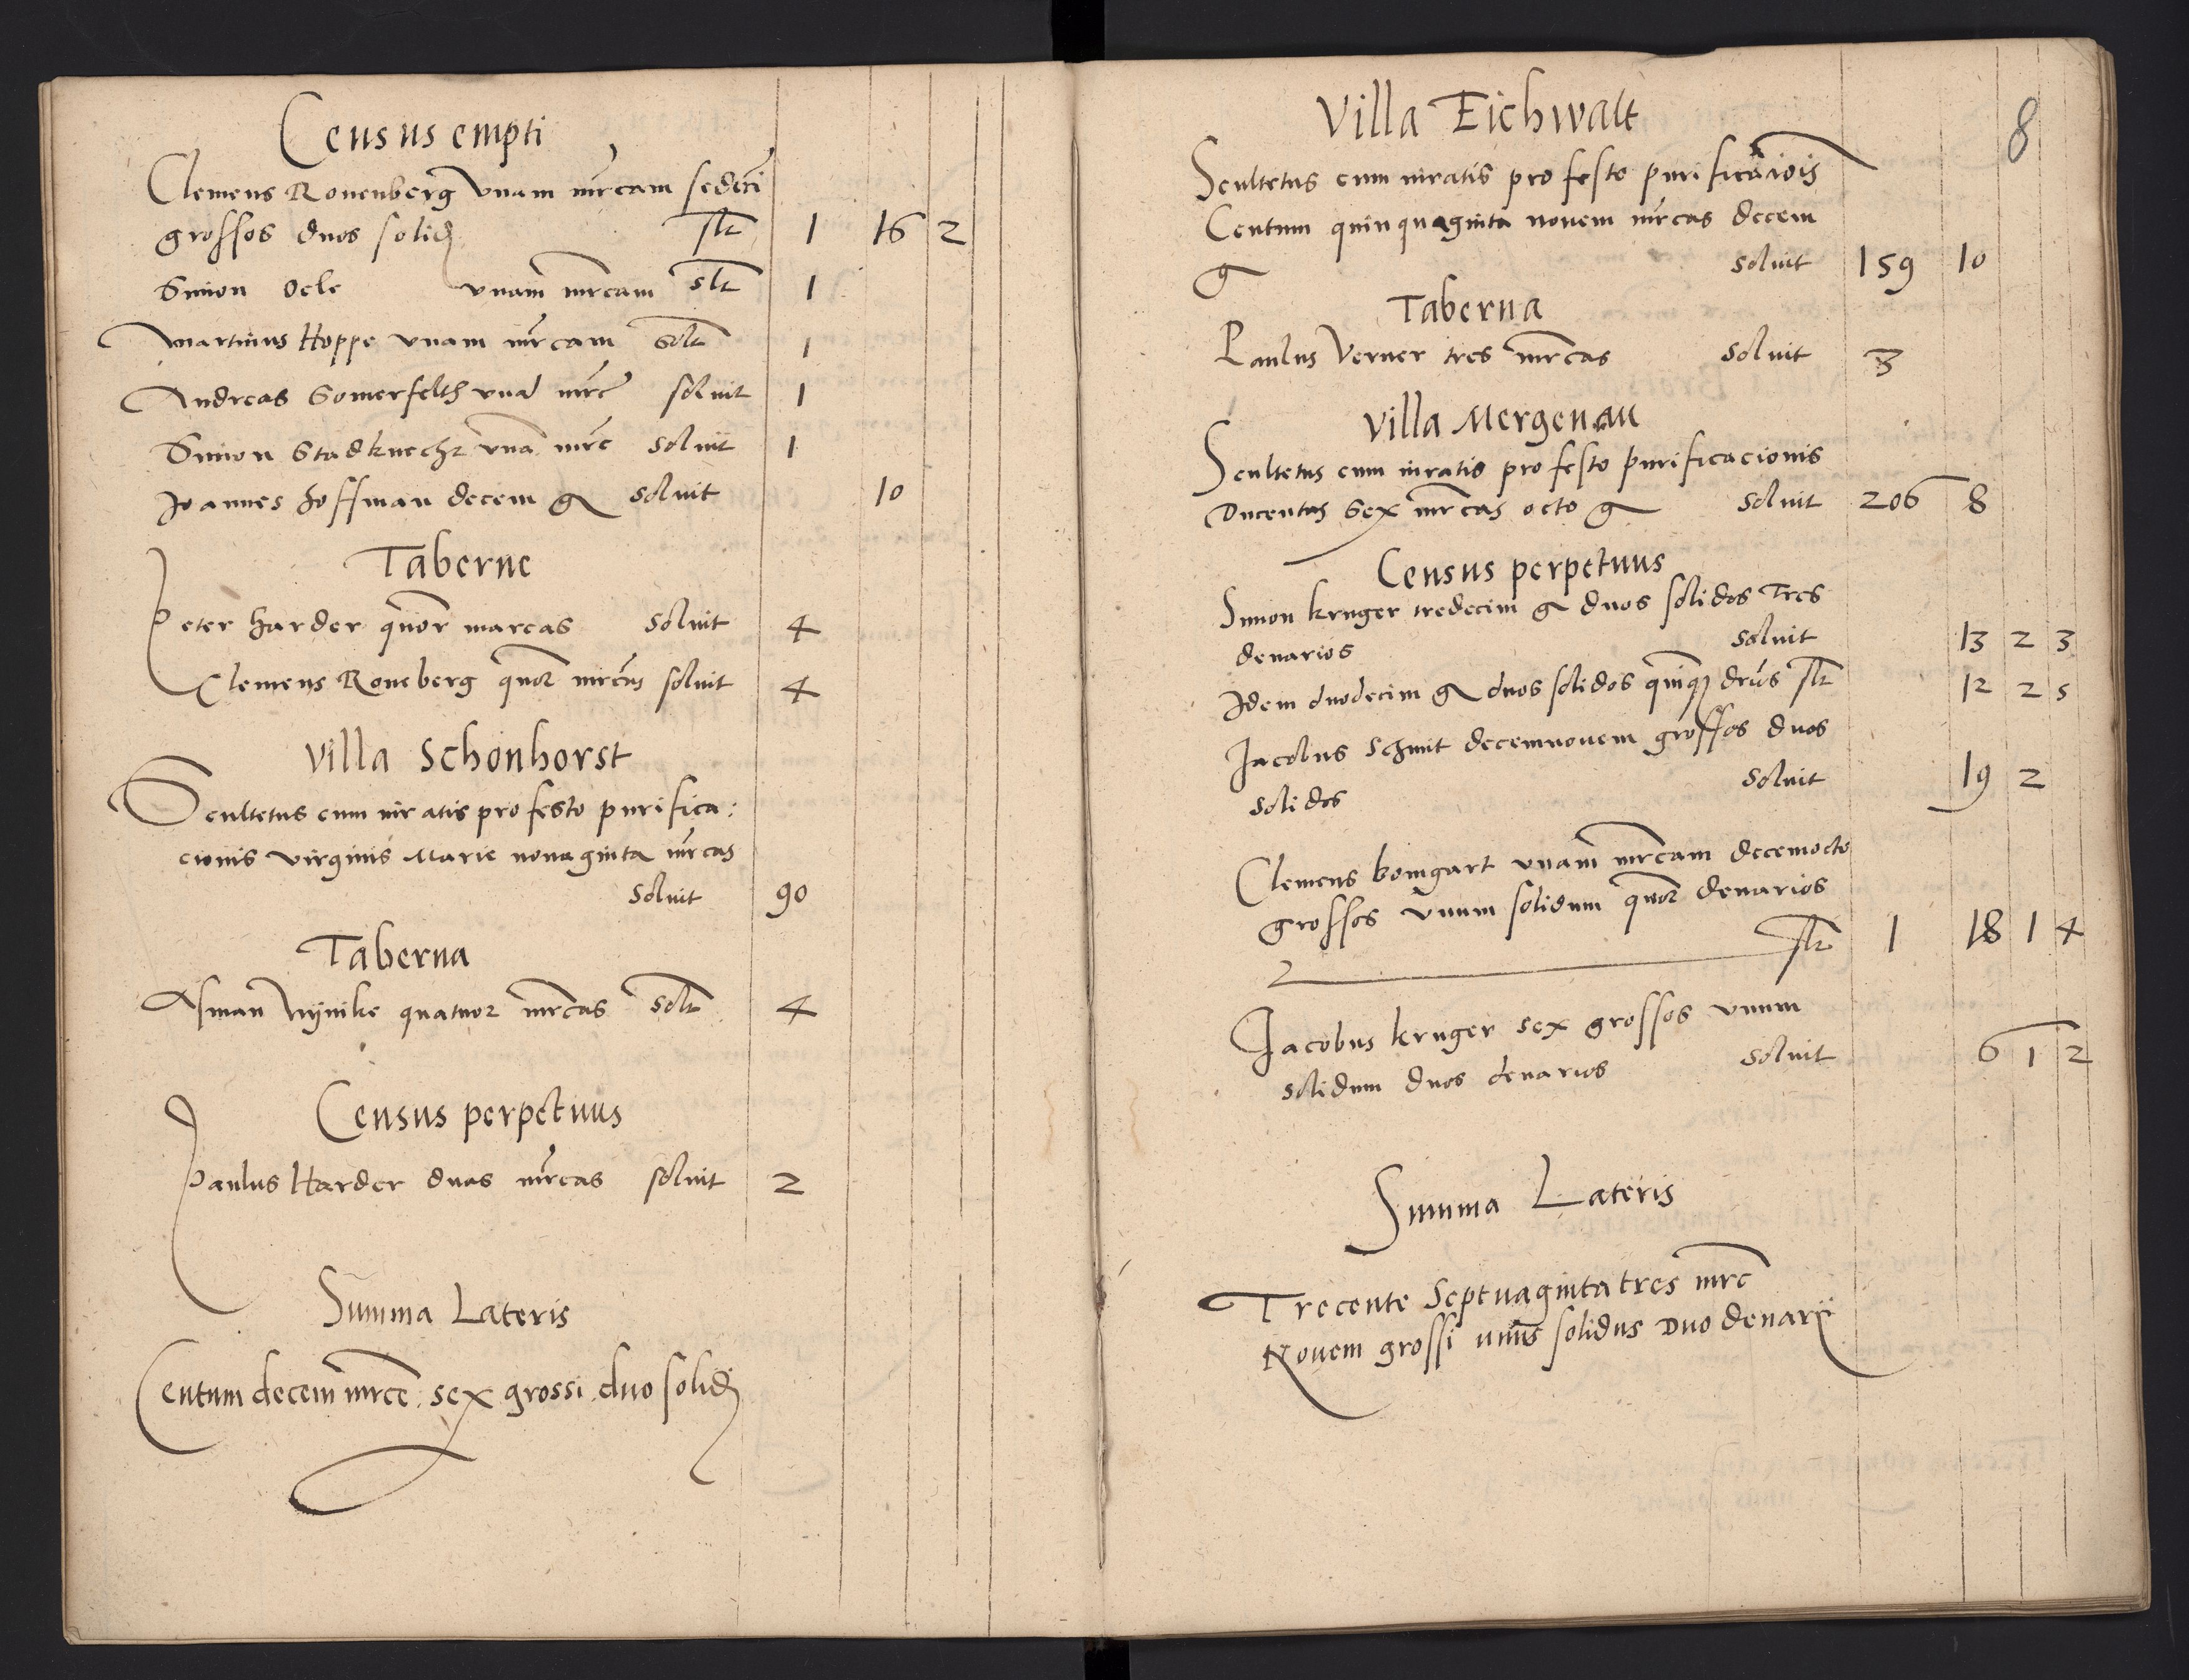 Census empti
Clemens Ronenberg vnam mrcam sedeci
grossos duos solid slt 1 16 2
Simon Ocle vnam mrcam slt 1
Martinus Hoppe vnam mrcam solt 1
Andreas Somerfelth vna mrc soluit 1
Simon Stadknecht vna mrc soluit 1
Joannes Hoffman decem g soluit 10
Taberne
Peter Harder quor marcas soluit 4
Clemens Roneberg quor mrcas soluit 4
Villa Schonhorst
Scultetus cum iuratis pro festo purifica:
cionis virginis Marie nonaginta mrcas
soluit 90
Taberna
Asman quatuor mrcas solt 4
Census perpetuus
Paulus Harder duas mrcas soluit 2
Summa Lateris
Centum decem mrce sex grossi duo solid
8
Villa Eichwalt
Scultetus cum iuratis pro festo purificaciois
Centum quinquaginta nouem mrcas decem
g soluit 159 10
Taberna
Paulus Verner tres mrcas soluit 3
Villa Mergenau
Scultetus cum iuratis pro festo purificacionis
Ducentas sex mrcas octo g soluit 206 8
Census perpetuus
Simon kruger tredecim g duos solidos Tres
denarios soluit 13 2 3
Idem duodecim g duos solidos quinq drios slt 12 2 5
Jacobus Schmit decemnouem grossos duos
solidos soluit 19 2
Clemens bomgart vnam mrcam decemocto
grossos vnum solidum quor denarios
slt 1 18 1 4
Jacobus kruger sex grossos vnum
solidum duos denarios soluit 6 1 2
Summa Lateris
Trecente Septuaginta tres mrc
Nouem grossi vnus solidus Duo denarii